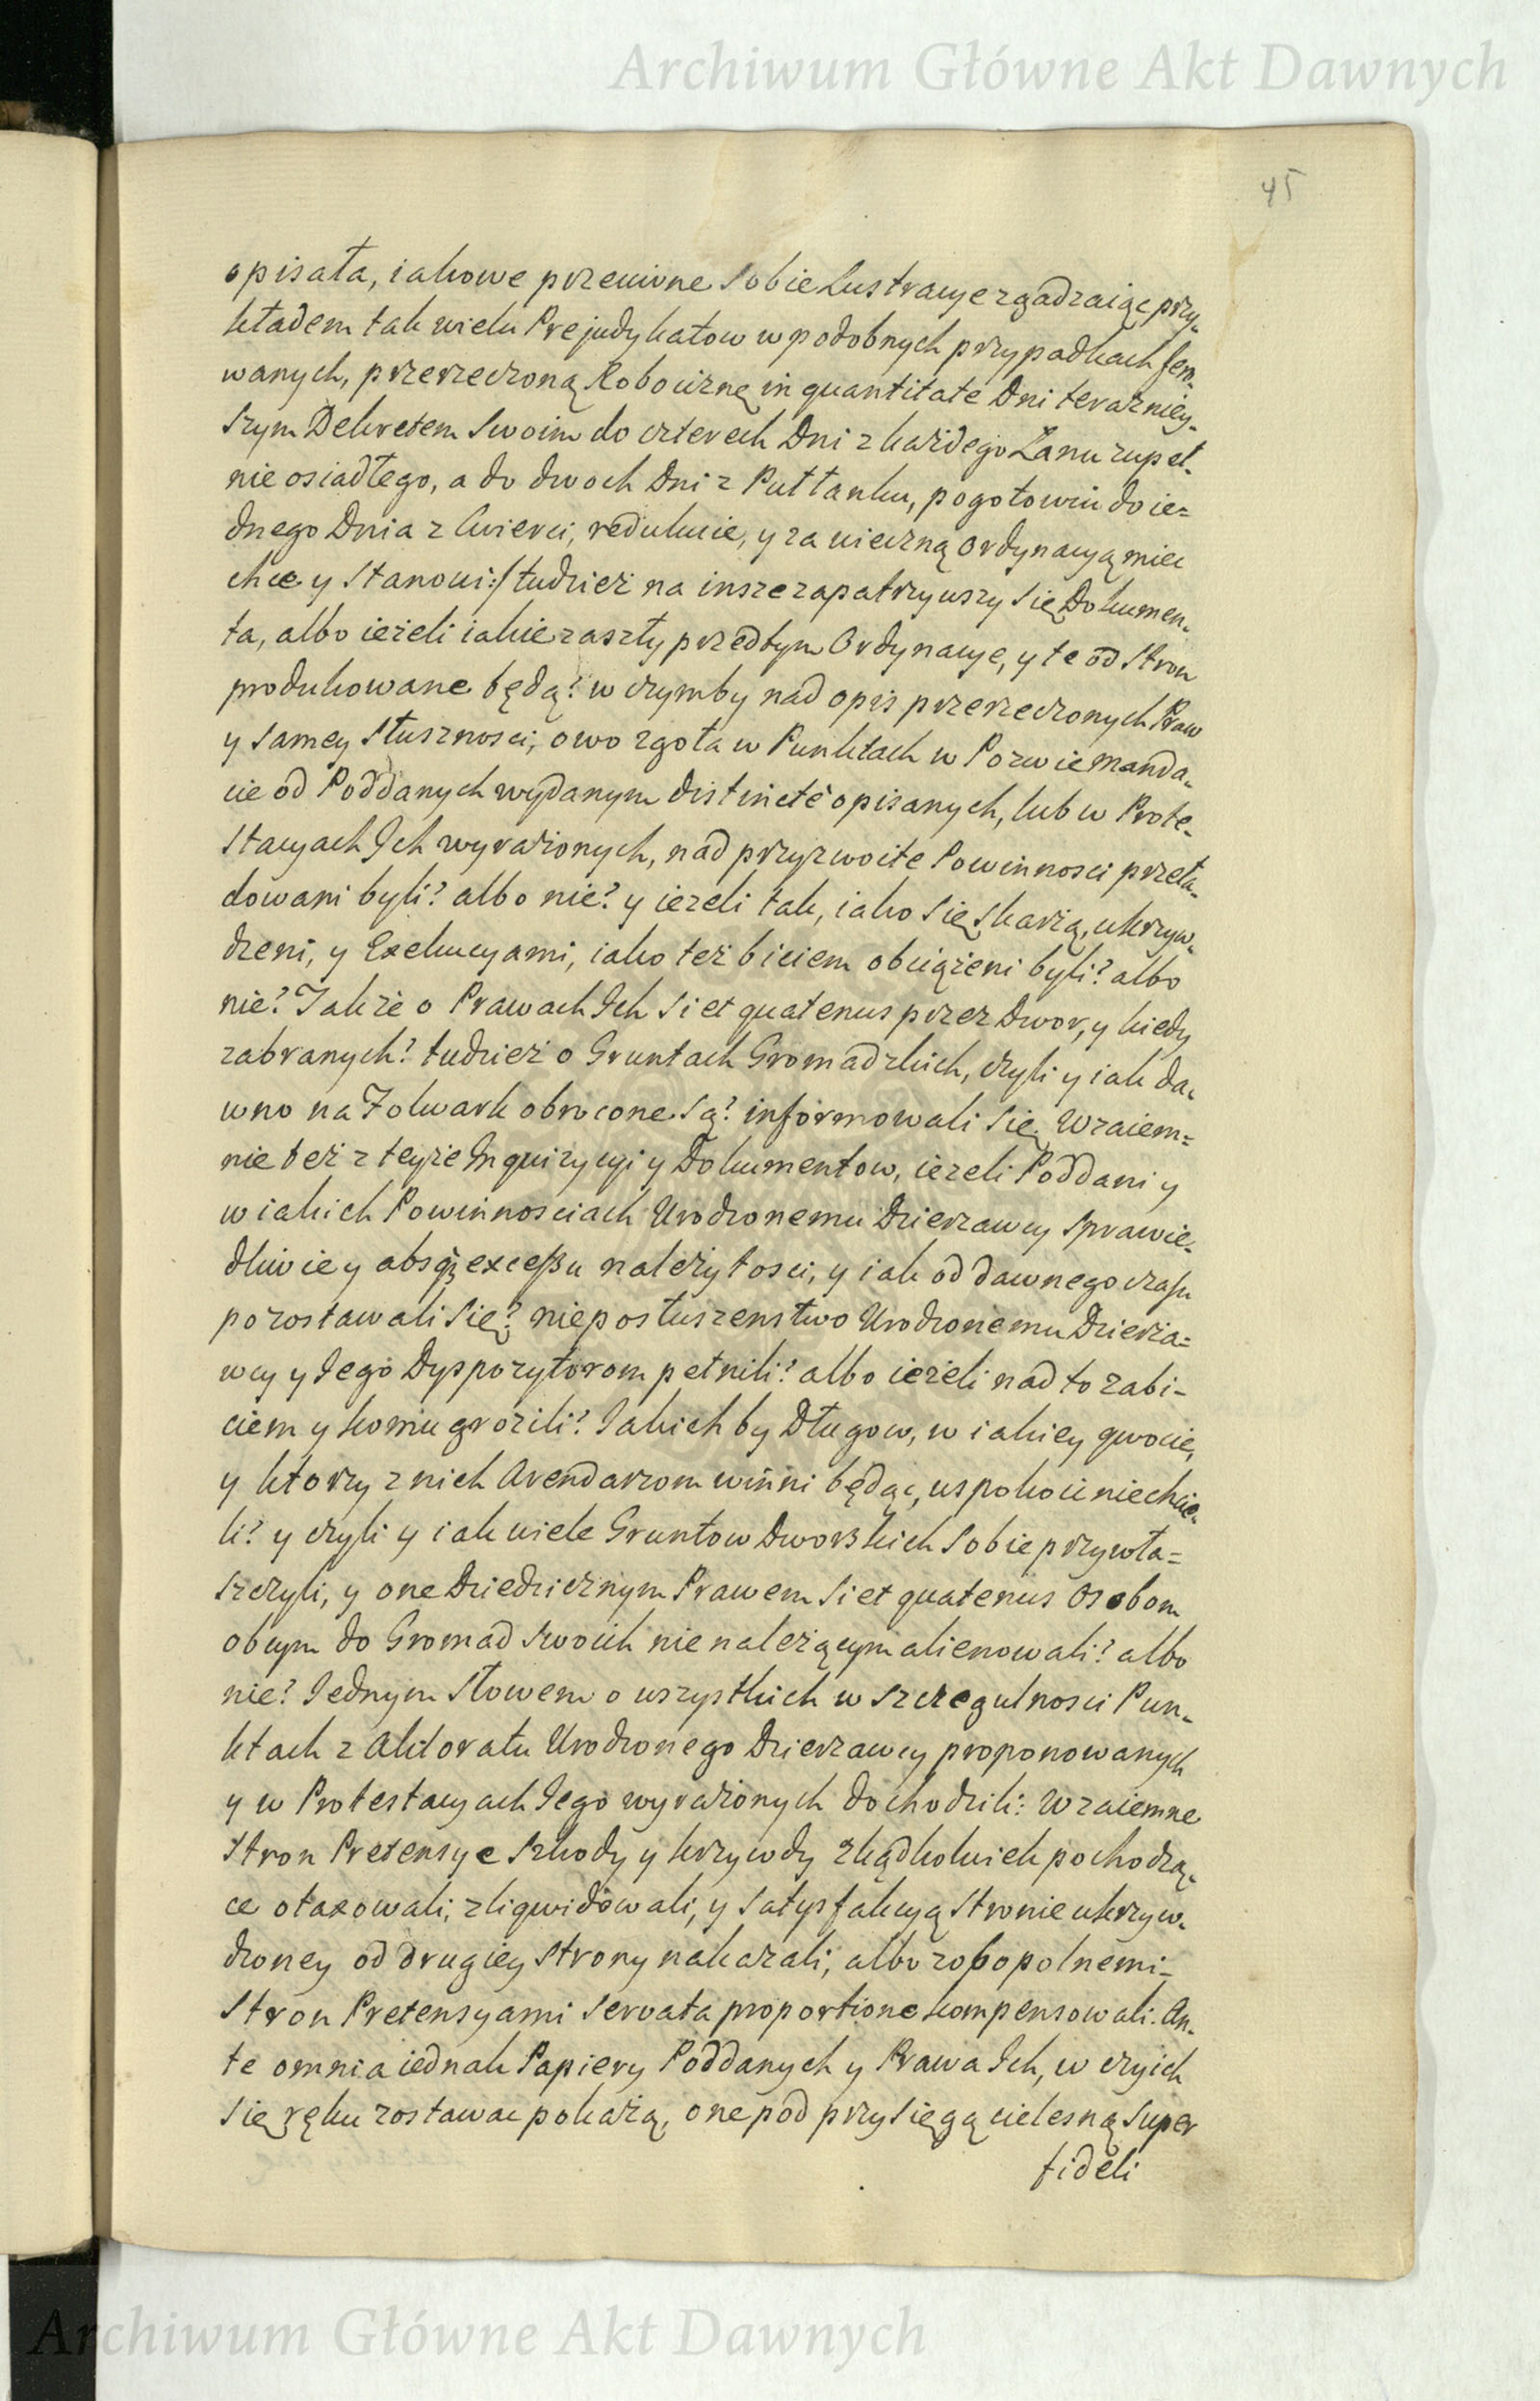 Archiwum Główne Akt Dawnych
45
opisała, iakowe przeciwne sobie Lustracye zgadzaiąc przy-
kładem tak wielu Prejudykatow w podobnych przypadkach fero-
wanych, przerzeczoną Robociznę in quantitate Dni terazniey-
szym Dekretem Swoim do czterech Dni z każdego Łanu zupeł-
nie osiadłego, a do dwoch Dni z Pułłanku, pogotowiu do ie=
dnego Dnia z Cwierci, redukuie, y za wieczną Ordynacyą miec
chce y Stanowi:/ tudzież na insze zapatrzywszy się Dokumen-
ta, albo ieżeli iakie zaszły przedtym Ordynacye, y te od Stron
produkowane będą? w czymby nad opis przerzeczonych Praw
y Samey Słusznosci, owo zgoła w Punktach w Pozwie Manda-
cie od Poddanych wydanym distincté opisanych, lub w Prote-
stacyach Ich wyrażonych, nad przyzwoite Powinnosci przeła-
dowani byli? albo nie? y ieżeli tak, iako się skarżą, ukrzyw-
dzeni, y Exekucyami, iako też biciem obciążeni byli? albo
nie? Także o Prawach Ich si et quatenus przez Dwor, y kiedy
zabranych? tudzież o Gruntach Gromadzkich, czyli y iak da-
wno na Folwark obrocone są? informowali się. Wzaiem=
nie też z teyże Inquizycyi y Dokumentow, ieżeli Poddani y
w iakich Powinnosciach Urodzonemu Dzierzawcy sprawie-
dliwie y absq3 excessu należytosci, y iak od dawnego czasu
pozostawali się? nieposłuszenstwo Urodzonemu Dzierża=
wcy y Jego Dyspozytorom pełnili? albo ieżeli nad to zabi-
ciem y komu grozili? Jakich by Długow, w iakiey qwocie,
y ktorzy z nich Arendarzom winni będąc, uspokoić niechcie-
li? y czyli y iak wiele Gruntow Dworskich Sobie przywła=
szczyli, y one Dziedzicznym Prawem si et quatenus Osobom
obcym do Gromad swoich nie należącym alienowali? albo
nie? Jednym Słowem o wszystkich w szczegulnosci Pun-
ktach z Aktoratu Urodzonego Dzierzawcy proponowanych
y w Protestacyach Jego wyrażonych dochodzili: Wzaiemne
Stron Pretensye szkody y krzywdy zkądkolwiek pochodzą-
ce otaxowali, zliqwidowali, y satysfakcyą Stronie ukrzyw-
dzoney od drugiey Strony nakazali, albo zobopolnemi-
Stron Pretensyami servata proportione kompensowali. An-
te omnia iednak Papiery Poddanych y Prawa Ich, w czyich
się ręku zostawac pokażą, one pod przysięgą cielesną super
fideli
Archiwum Główne Akt Dawnych